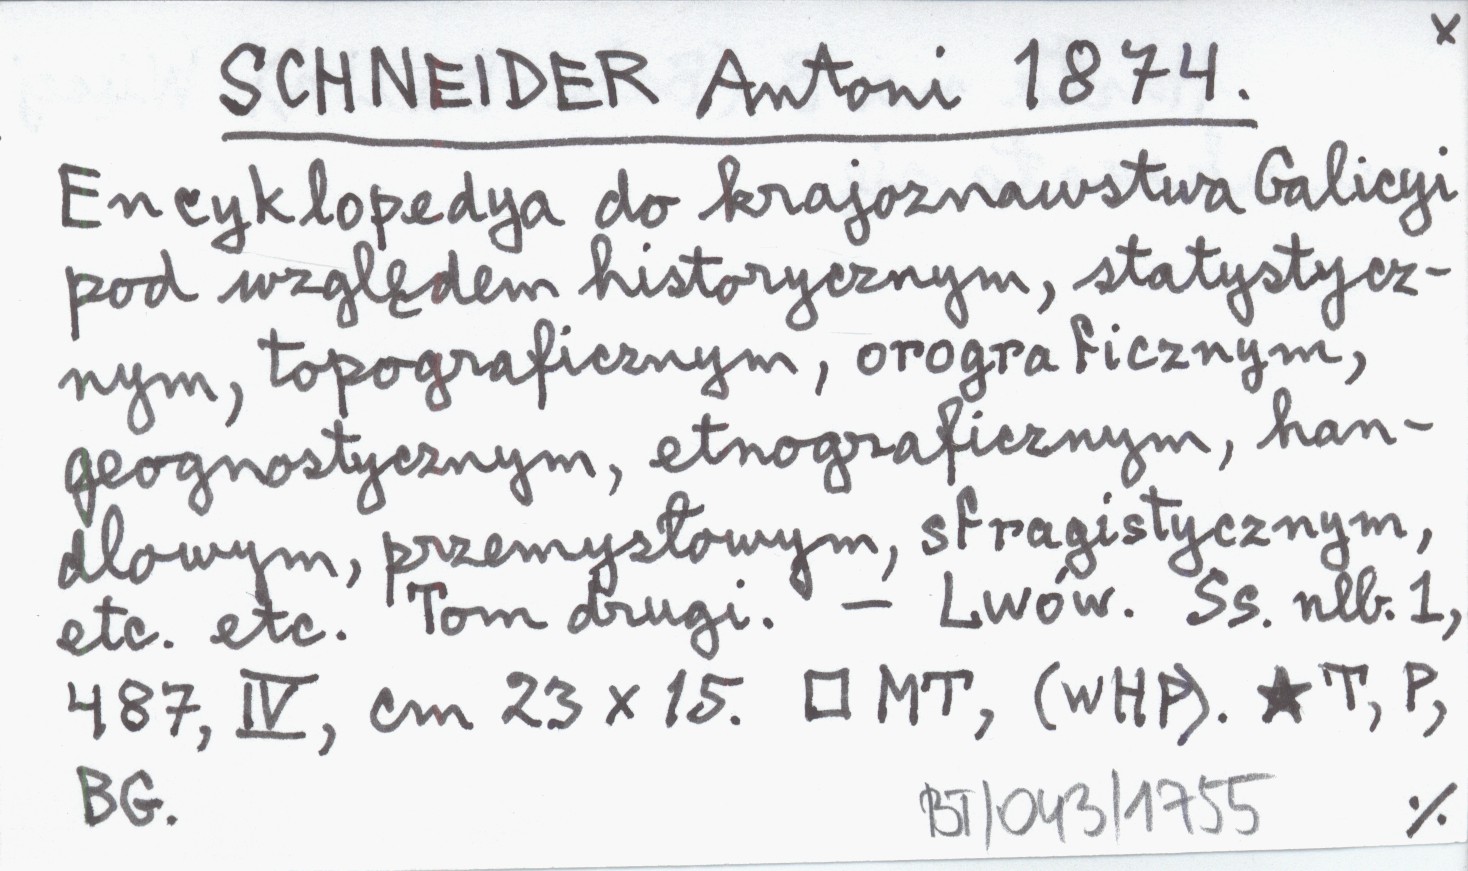 x
SCHNEIDER Antoni 1874.
Encyklopedya do krajoznawstwa Galicyi
pod względem historycznym, statystycz-
nym, topograficznym, orograficznym,
geognostycznym, etnograficznym, han-
dlowym, przemysłowym, sfragistycznym,
etc. etc. Tom drugi. — Lwów. Ss. nlb. 1,
487, IV, cm 23 x 15. □ MT, (WHP). ★ T, P,
BG.
BT/043/1755
./.